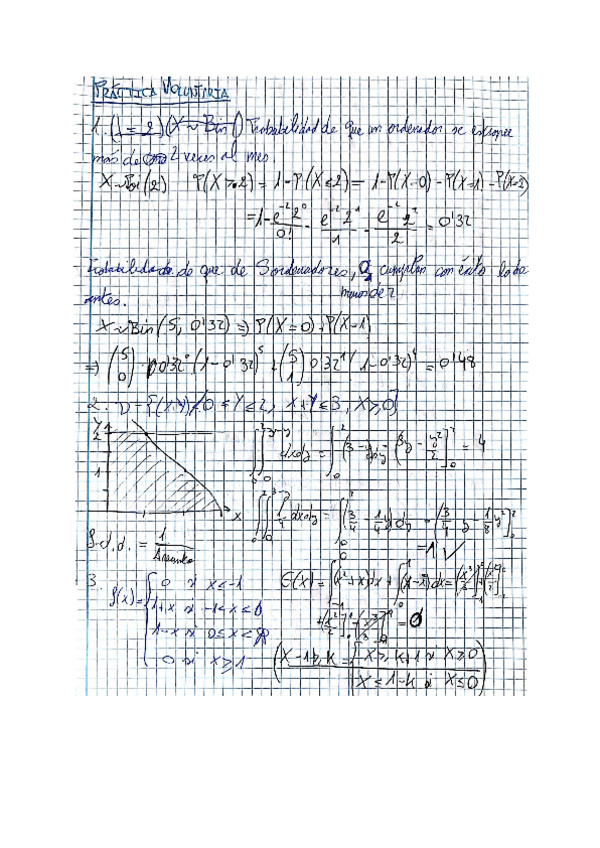 PRÁCTICA VOLUNTARIA
1. (λ = 2) (X~Bin() Probabilidad de que un ordenador se estropee
más de 2 veces al mes
X~Poi(2) P(X>2) = 1-P(X≤2) = 1-P(X=0) - P(X=1) - P(X=2)
= 1 - e^-2 2^0 / 0! - e^-2 2^1 / 1 - e^-2 2^2 / 2 = 0'32
Probabilidad de que de 5 ordenadores, cumplan con éxito lo de
antes. menos de 2
X~Bin(5, 0'32) ⇒ P(X=0)+P(X=1)
⇒ (5 0) · 0'32^0 (1-0'32)^5 + (5 1) 0'32^1 (1-0'32)^4 = 0'48
2. D={(x,y)/0≤Y≤2, X+Y≤3, X≥0}
∫_0^2 ∫_0^{3-y} dxdy = ∫_0^2 (3-y)dy = (3y - y²/2]_0^2 = 4
Y 2 1 X
∫_0^2 ∫_0^{3-y} 1/4 dxdy = ∫_0^2 (3/4 - 1/4 y) dy = (3/4 y - 1/8 y²]_0^2
= 1 ✓
f.d.d. = 1/
3.
f(x) = { 0 si x≤-1
1+x si -1<x≤0
1-x si 0≤x<1
0 si x≥1
E(X) = ∫_{-1}^0 (x²+x)dx + ∫_0^1 (x-x²)dx =
= 0
(X-1≥K = { X≥K+1 si X≥0
X≤1-K si X≤0)